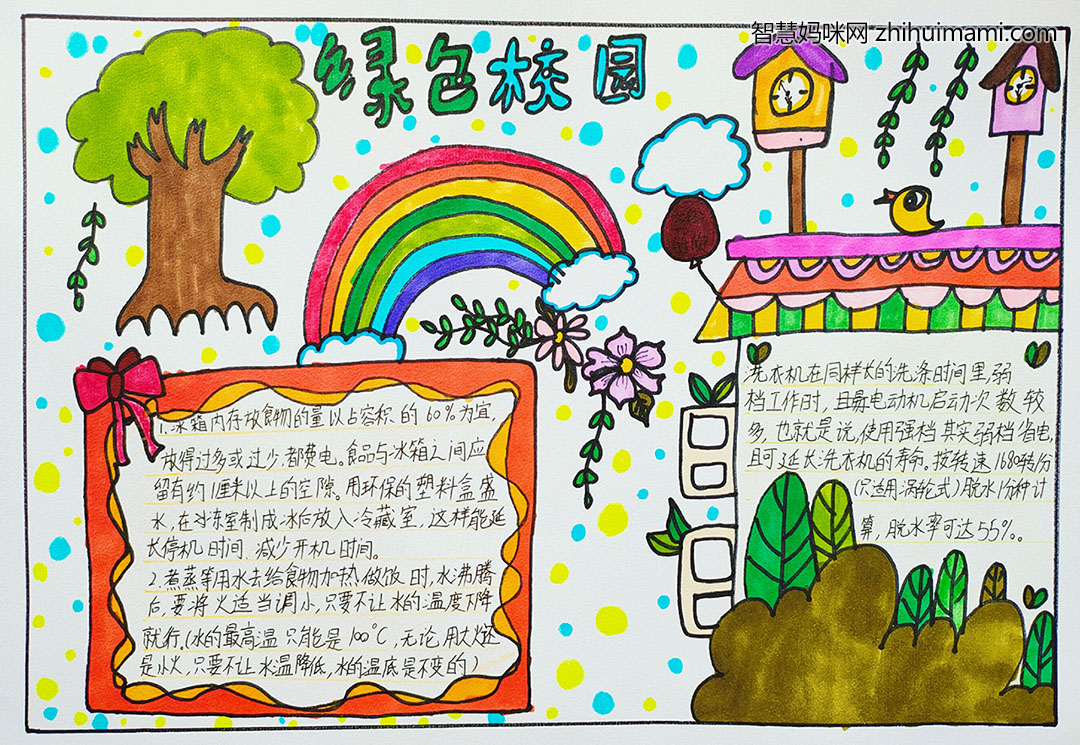 智慧妈咪网 zhihuimami.com
绿色校园
1.冰箱内存放食物的量以占容积的60%为宜,
放得过多或过少,都费电。食品与冰箱之间应
留有约1厘米以上的空隙。用环保的塑料盒盛
水,在冷冻室制成冰后放入冷藏室,这样能延
长停机时间、减少开机时间。
2.煮蒸等用水去给食物加热做饭时,水沸腾
后,要将火适当调小,只要不让水的温度下降
就行。(水的最高温只能是100℃,无论用大火还
是小火,只要不让水温降低,水的温底是不变的)
洗衣机在同样长的洗涤时间里,弱
档工作时,且每电动机启动次数较
多,也就是说,使用强档其实弱档省电,
且可延长洗衣机的寿命。按转速1680转/分
(只适用涡轮式)脱水1分种计
算,脱水率可达55%。